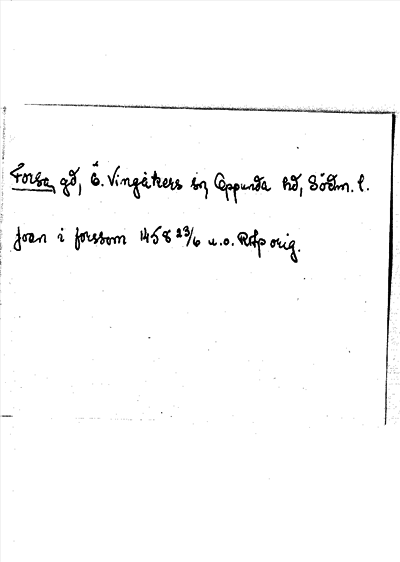 Forsa, gd, Ö. Vingåkers sn Oppunda hd, Södm. l.
joan i forssom 1458 23/6 u.o. RAp orig.